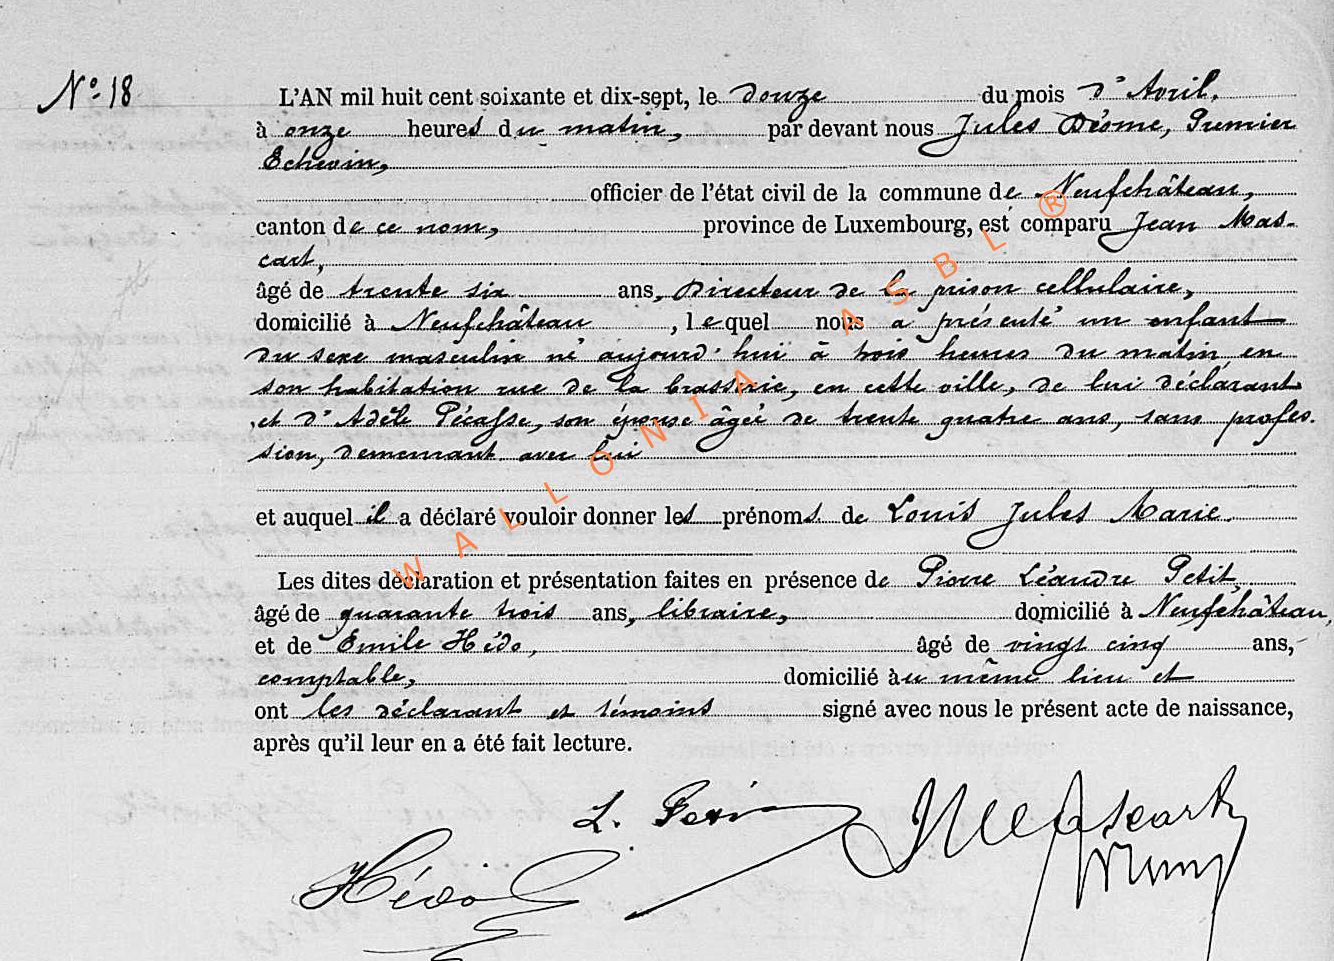 N° 18
L'AN mil huit cent soixante et dix-sept, le douze du mois d'Avril,
à onze heures du matin, par devant nous Jules Désme, Premier
Echevin,
officier de l'état civil de la commune de Neufchâteau,
canton de ce nom, province de Luxembourg, est comparu Jean Mas-
cart,
âgé de trente six ans, Directeur de la prison cellulaire,
domicilié à Neufchâteau, lequel nous a présenté un enfant
du sexe masculin né aujourd'hui à trois heures du matin en
son habitation rue de la brasserie, en cette ville, de lui déclarant
et d'Adèle Pécasse, son épouse âgée de trente quatre ans, sans profes-
sion, demeurant avec lui
et auquel il a déclaré vouloir donner les prénoms de Louis Jules Marie
Les dites déclaration et présentation faites en présence de Pierre Léandre Petit
âgé de quarante trois ans, libraire, domicilié à Neufchâteau,
et de Emile Hédo, âgé de vingt cinq ans,
comptable, domicilié au même lieu et
ont les déclarant et témoins signé avec nous le présent acte de naissance,
après qu'il leur en a été fait lecture.
L. Petit JMascart
Hédo
WALLONIA ASBL ®